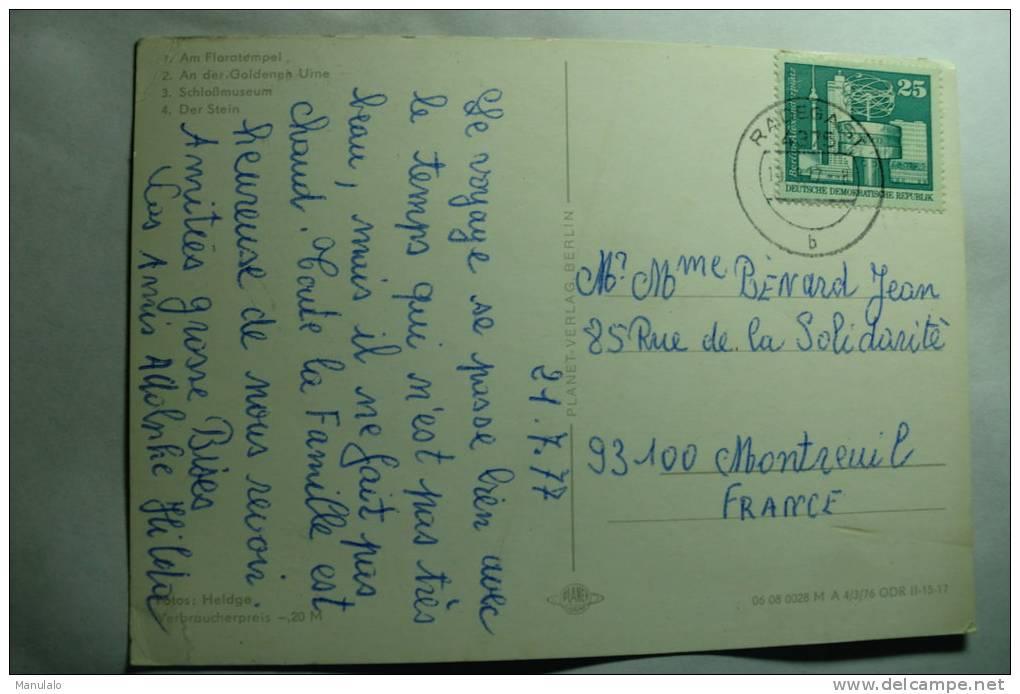 1. Am Floratempel
2. An der Goldenen Urne
3. Schloßmuseum
4. Der Stein
21.7.77
Le voyage se passe bien avec
le temps qui n'est pas très
beau, mais il ne fait pas
chaud. Toute la Famille est
heureuse de nous revoir.
Amitiés grosse Bises
Los Amis Adolphe Hilda
Fotos: Heldge
Verbraucherpreis -,20 M
PLANET-VERLAG BERLIN
PLANET
25
DEUTSCHE DEMOKRATISCHE REPUBLIK
RADEGAST
b
Mr Mme BÉNARD Jean
85 Rue de la Solidarité
93100 Montreuil
FRANCE
06 08 0028 M A 4/3/76 ODR II-15-17
Manulalo
delcampe.net